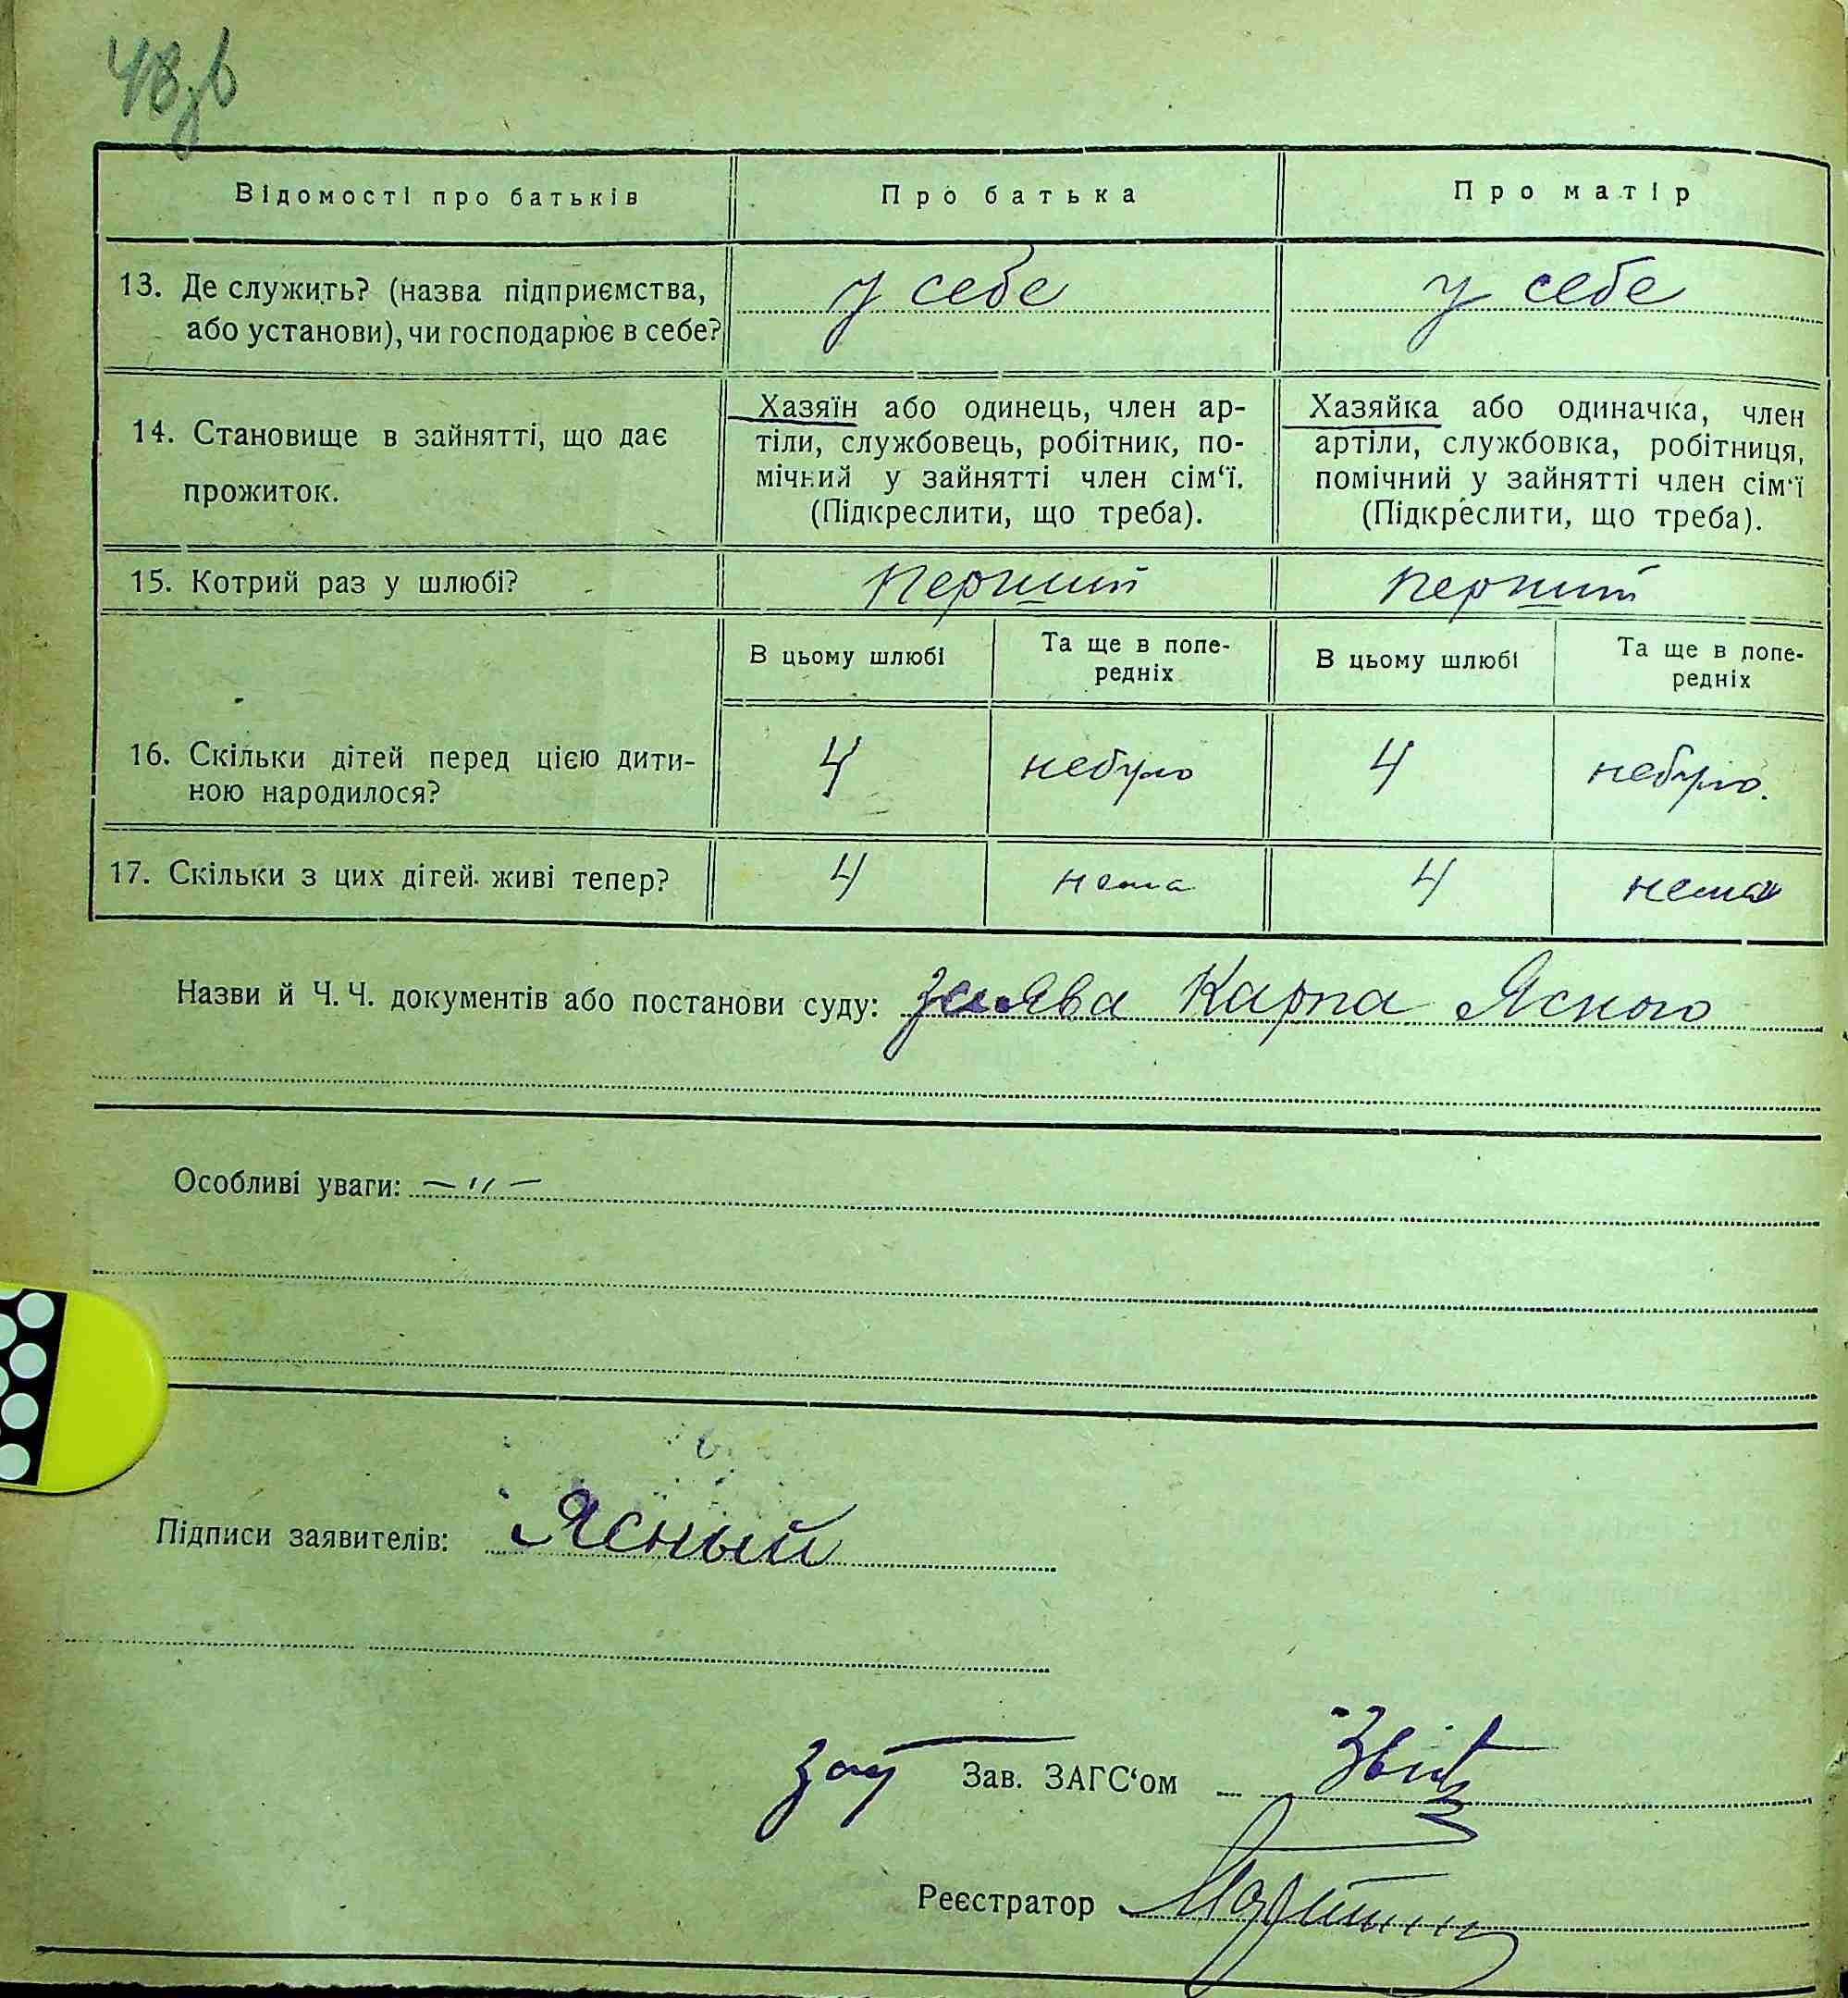 48зв
Відомості про батьків
Про батька
Про матір
13. Де служить? (назва підприємства,
або установи), чи господарює в себе?
у себе
у себе
14. Становище в зайнятті, що дає
прожиток.
Хазяїн або одинець, член ар-
тіли, службовець, робітник, по-
мічний у зайнятті член сім‘ї.
(Підкреслити, що треба).
Хазяйка або одиначка, член
артіли, службовка, робітниця,
помічний у зайнятті член сім‘ї
(Підкреслити, що треба).
15. Котрий раз у шлюбі?
перший
перший
В цьому шлюбі
Та ще в попе-
редніх
В цьому шлюбі
Та ще в попе-
редніх
16. Скільки дітей перед цією дити-
ною народилося?
4
небуло
4
небуло.
17. Скільки з цих дітей живі тепер?
4
нема
4
нема
Назви й Ч. Ч. документів або постанови суду: заява Карпа Ясного
Особливі уваги: – " –
Підписи заявителів: Ясный
Зав. ЗАГС‘ом
Реєстратор